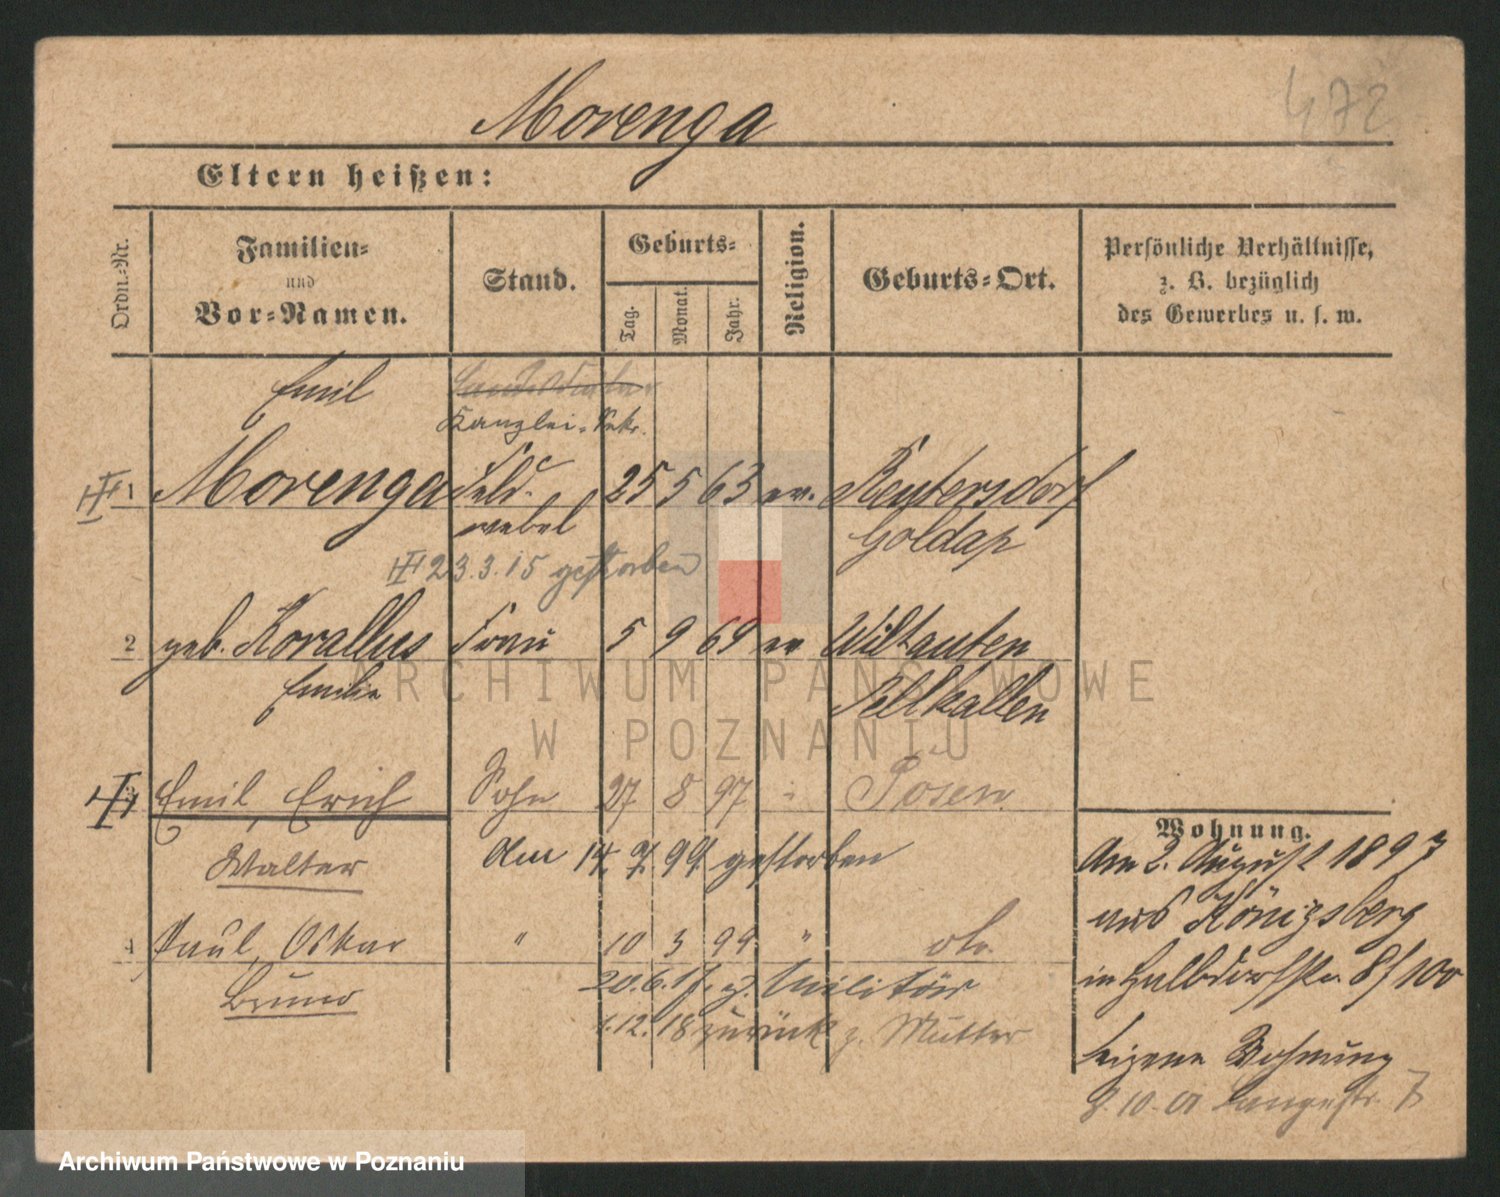 Morenga
472
Eltern heißen:
Ordn.-Nr.
Familien-
und
Vor-Namen.
Stand.
Geburts-
Tag.
Monat.
Jahr.
Religion.
Geburts-Ort.
Persönliche Verhältnisse,
z. B. bezüglich
des Gewerbes u. s. w.
Emil
Kanzlei-Sekr.
1 Morenga Feld- 25 5 63 ev. Reutersdorf
webel Goldap
23.3.15 gestorben
2 geb. Korallus Frau 5 9 69 ev Wiltauten
Emilie Pillkallen
3 Emil, Erich Sohn 27 8 97 Posen
Walter
Am 14. 9. 99 gestorben
4 Paul, Oskar " 10 3 99 " do.
Bruno
20.6.17. z. Militär
1.12.18 zurück z. Mutter
Wohnung.
Am 2. August 1897
aus Königsberg
in Halbdorfstr. 8/100
eigene Wohnung
8.10.01 Langestr. 7
ARCHIWUM PAŃSTWOWE
W POZNANIU
Archiwum Państwowe w Poznaniu